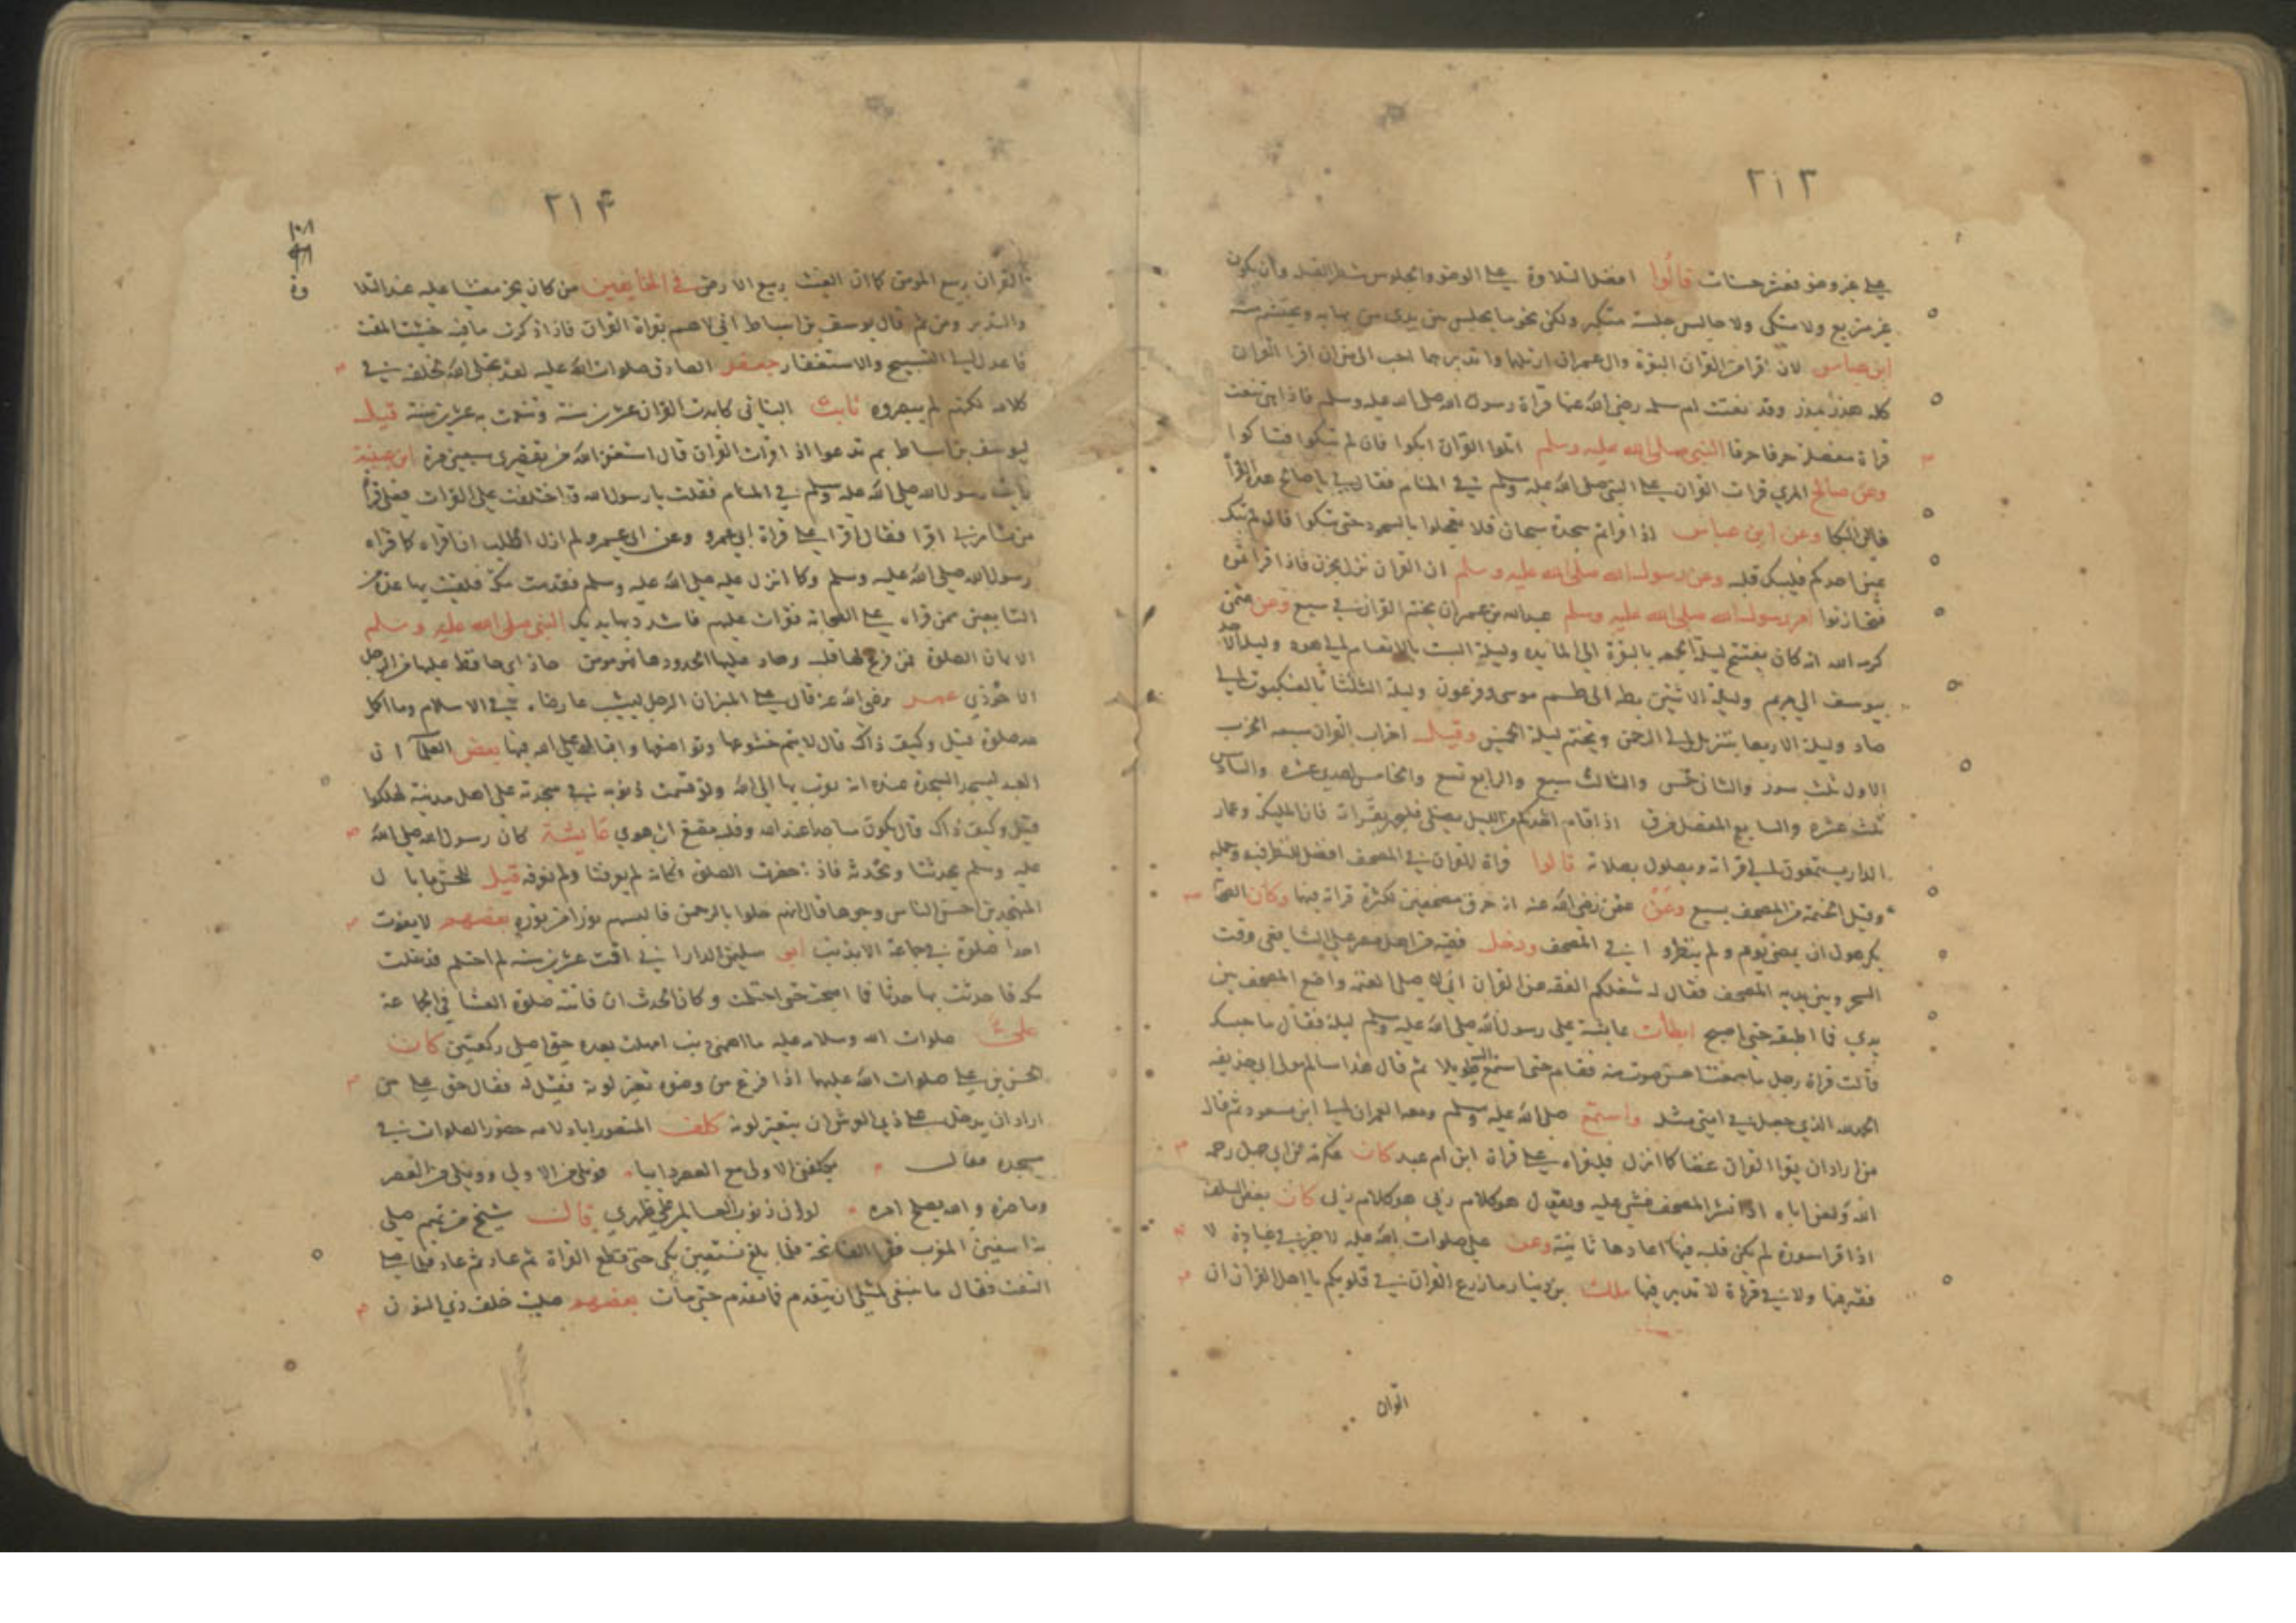 ٢١٣
على غير وضو فعشر حسنات قالوا افضل التلاوة على الوضو والجلوس شطر القبلة وان يكون
غير متربع ولا متكى ولا جالس جلسة متكبر ولكن نحو ما يجلس بين يدى من يهابه ويحتشم منه
ابن عباس لان اقرا من القران البقرة وال عمران ارتلها واتدبرهما احب الى من ان اقرا القران
كله وقد نعتت ام سلمه رضى الله عنها قراة رسول الله صلى الله عليه وسلم فاذا هى تنعت
قراة مفصلة حرفا حرفا النبي صلى الله عليه وسلم اتلوا القران ابكوا فان لم تبكوا فتباكوا
وعن صالح المري قرات القران على النبي صلى الله عليه وسلم في المنام فقال لي يا صالح هذه القراة
فاين البكا وعن ابن عباس اذا قراتم سجدة سبحان فلا تعجلوا بالسجود حتى تبكوا فان لم تبك
عين احدكم فليبك قلبه وعن رسول الله صلى الله عليه وسلم ان القران نزل بحزن فاذا قراتموه
فتحازنوا امر رسول الله صلى الله عليه وسلم عبدالله بن عمر ان يختم القران في سبع وعن عثمن
كرمه الله انه كان يفتتح ليلة الجمعه بالبقرة الى المايده وليلة السبت بالانعام الى هود وليلة الاحد
بيوسف الى مريم وليلة الاثنين بطه الى طسم موسى وفرعون وليلة الثلثا بالعنكبوت الى
صاد وليلة الاربعا بتنزيل الى الرحمن ويختم ليلة الخميس وقيل احزاب القران سبعه الحزب
الاول ثلث سور والثاني خمس والثالث سبع والرابع تسع والخامس احدى عشره والسادس
ثلث عشره والسابع المفصل من ق اذا قام احدكم من الليل يصلي فليجهر بقراته فان المليكة وعمار
الدار يستمعون الى قراته ويصلون بصلاته قالوا قراة القران في المصحف افضل للنظر فيه وحمله
وقيل الختمة من المصحف بسبع وعن عثمن رضى الله عنه انه خرق مصحفين لكثرة قراته فيها وكان الصحا
يكرهون ان يمضي يوم ولم ينظروا في المصحف ودخل فقيه من اهل مصر على الشافعي وقت
السحر وبين يديه المصحف فقال له شغلكم الفقه عن القران اني لا صلى العتمة واضع المصحف بين
يدي فما اطبقه حتى اصبح ابطأت عايشة على رسول الله صلى الله عليه وسلم ليلة فقال ما حبسك
قالت قراة رجل ما سمعت احسن صوت منه فقام حتى استمع اليه طويلا ثم قال هذا سالم مولى ابي حذيفه
الحمدلله الذي جعل في امتي مثله واستمع صلى الله عليه وسلم ومعه العمران الى ابن مسعود ثم قال
من اراد ان يقرا القران غضا كما انزل فليقراه على قراة ابن ام عبد كان عكرمة بن ابي جهل رحمه
الله ولعن اباه اذا نشر المصحف غشي عليه ويقول هو كلام ربي هو كلام ربي كان بعض السلف
اذا قرا سورة لم يكن قلبه فيها اعادها ثانية وعن علي صلوات الله عليه لا خير في عبادة لا
فقه فيها ولا في قراة لا تدبر فيها ملك بن دينار ما زرع القران في قلوبكم يا اهل القران ان
القران
٢١۴
القران ربيع المومن كما ان الغيث ربيع الارض في الخايفين من كان يخر مغشيا عليه عند التلا
والتدبر ومن ثم قال يوسف بن اسباط اني لاهم بقراة القران فاذا ذكرت ما فيه خشيت المقت
فاعدل الى التسبيح والاستغفار جعفر الصادق صلوات الله عليه لقد تجلى الله لخلقه في
كلامه لكنهم لم يبصروه ثابت البناني كابدت القران عشرين سنة وتنعمت به عشرين سنة قيل
ليوسف بن اسباط بم تدعوا اذا قرات القران قال استغفر الله من تقصيري سبعين مرة ابن عيينة
رايت رسول الله صلى الله عليه وسلم في المنام فقلت يا رسول الله قد اختلفت علي القرات فعلى قراة
من تامرني اقرا فقال اقرا على قراة ابي عمرو وعن ابي عمرو لم ازل اطلب ان اقراه كما قراه
رسول الله صلى الله عليه وسلم وكما انزل عليه صلى الله عليه وسلم فقدمت مكة فلقيت بها عدة من
التابعين ممن قراه على الصحابة فقرات عليهم فاشدد بها يديك النبي صلى الله عليه وسلم
الايمان الصلوة فمن فرغ لها قلبه وحاد عليها بحدودها فهو مومن حاذ اي حافظ عليها من الرجل
الاحوذي عمر رضى الله عنه قال على المنبر ان الرجل ليشيب عارضاه في الاسلام وما اكمل
لله صلوة قيل وكيف ذاك قال لا يتم خشوعها وتواضعها واقباله على الله فيها بعض العلما ان
العبد ليسجد السجدة عنده انه تقرب بها الى الله ولو قسمت ذنوبه في سجدته على اهل مدينة لهلكوا
قيل وكيف ذاك قال يكون ساجدا عند الله وقلبه مصغ الى هوى عايشة كان رسول الله صلى الله
عليه وسلم يحدثنا ونحدثه فاذا حضرت الصلوة فكانه لم يعرفنا ولم نعرفه قيل للحسن ما بال
المتهجدين احسن الناس وجوها قال انهم خلوا بالرحمن فالبسهم نورا من نوره بعضهم لا يفوت
احدا صلوة في جماعة الا بذنب ابو سليمن الداراني اقمت عشرين سنه لم احتلم فدخلت
مكه فاحدثت بها حدثا فما اصبحت حتى احتلمت وكان الحدث ان فاتته صلوة العشا في الجماعة
علي صلوات الله وسلامه عليه ما اهمني ذنب امهلت بعده حتى اصلي ركعتين كان
الحسن بن علي صلوات الله عليهما اذا فرغ من وضوه تغير لونه فقيل له فقال حق على من
اراد ان يدخل على ذي العرش ان يتغير لونه كلف المنصور ابا دلامه حضور الصلوات في
مسجده فقال يكلفني الاولى مع العصر دايبا فويلى من الاولى وويلى من العصر
وما ضره والله يصلح امره لو ان ذنوب العالمين على ظهري قال شيخ من تميم صلى
بنا سفين المغرب فقرا الفاتحة فلما بلغ نستعين بكى حتى قطع القراة ثم عاد ثم عاد فلما صلى
التفت فقال ما ينبغي لمثلي ان يتقدم فما تقدم حتى مات بعضهم صليت خلف ذي النون